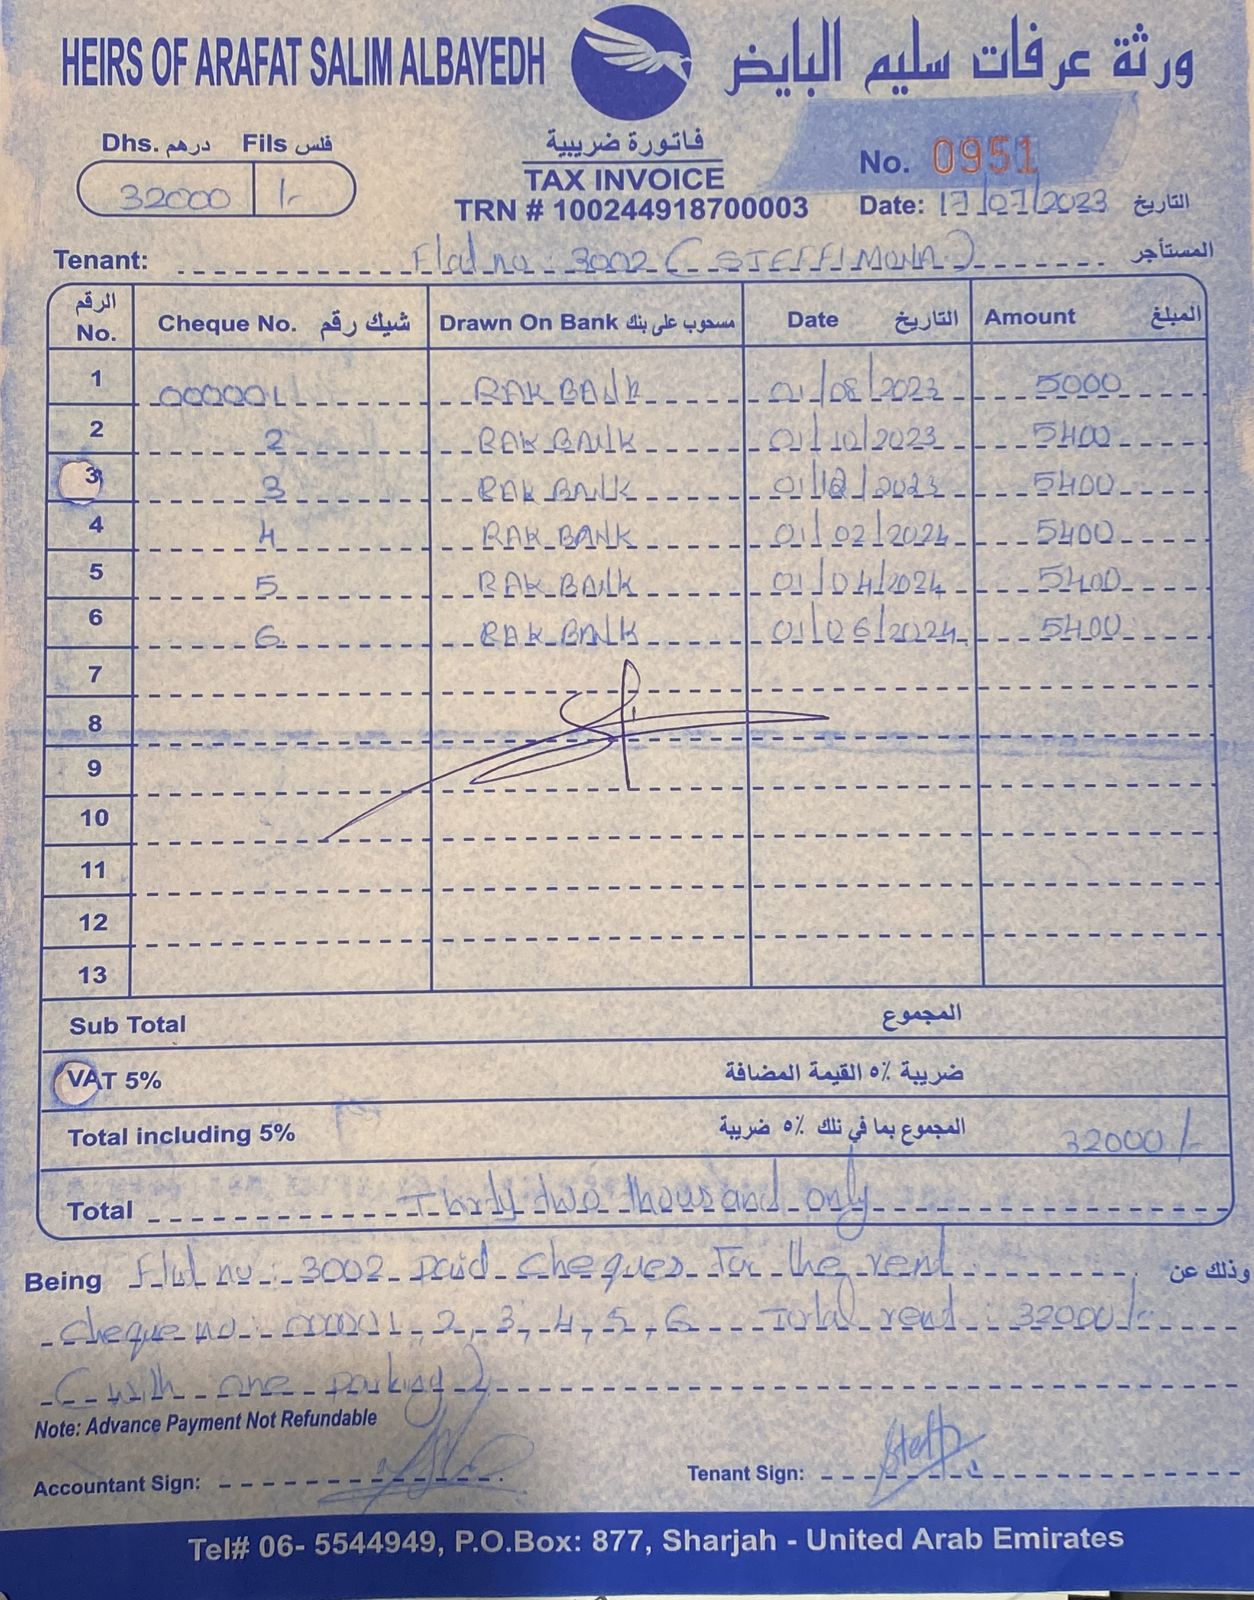 HEIRS OF ARAFAT SALIM ALBAYEDH ورثة عرفات سليم البايض
Dhs. درهم Fils فلس
32000 /-
فاتورة ضريبية
TAX INVOICE
TRN # 100244918700003
No. 0951
Date: 17/07/2023 التاريخ
Tenant: Flat no : 3002 ( STEFFI MONA ) المستأجر
الرقم No. Cheque No. شيك رقم Drawn On Bank مسحوب على بنك Date التاريخ Amount المبلغ
1 000001 RAK BANK 01/08/2023 5000
2 2 RAK BANK 01/10/2023 5400
3 3 RAK BANK 01/12/2023 5400
4 4 RAK BANK 01/02/2024 5400
5 5 RAK BANK 01/04/2024 5400
6 6 RAK BANK 01/06/2024 5400
7
8
9
10
11
12
13
Sub Total المجموع
VAT 5% ضريبة ٥٪ القيمة المضافة
Total including 5% المجموع بما في تلك ٥٪ ضريبة 32000/-
Total Thirty two thousand only
Being Flat no : 3002 paid cheques for the rent وذلك عن
cheque no : 000001, 2, 3, 4, 5, 6 Total rent : 32000/-
( with one parking )
Note: Advance Payment Not Refundable
Accountant Sign: Tenant Sign: Steffi
Tel# 06- 5544949, P.O.Box: 877, Sharjah - United Arab Emirates